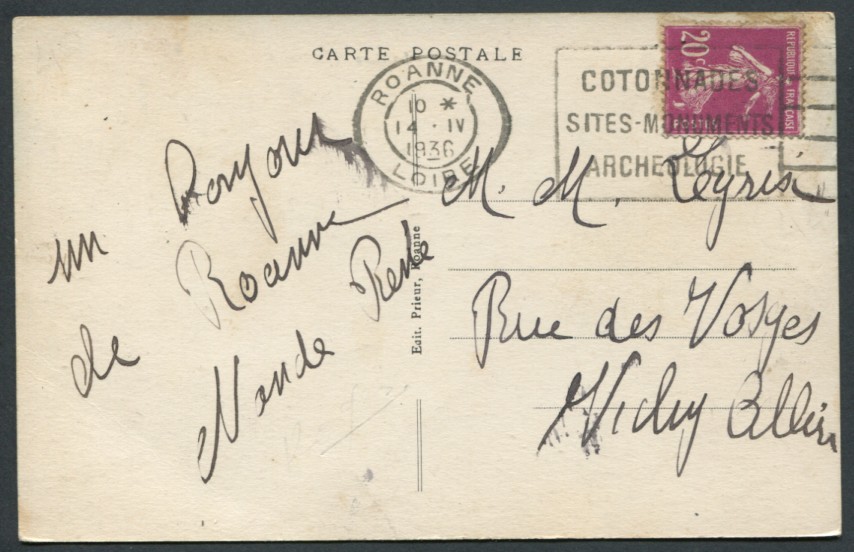 CARTE POSTALE
ROANNE
10 *
14 · IV
1936
LOIRE
COTONNADES
SITES-MONUMENTS
ARCHEOLOGIE
20c
REPUBLIQUE FRANÇAISE
POSTES
un Bonjour
de Roanne
René
Edit. Prieur, Roanne
M. et M. Leyris
Rue des Vosges
Vichy Allier